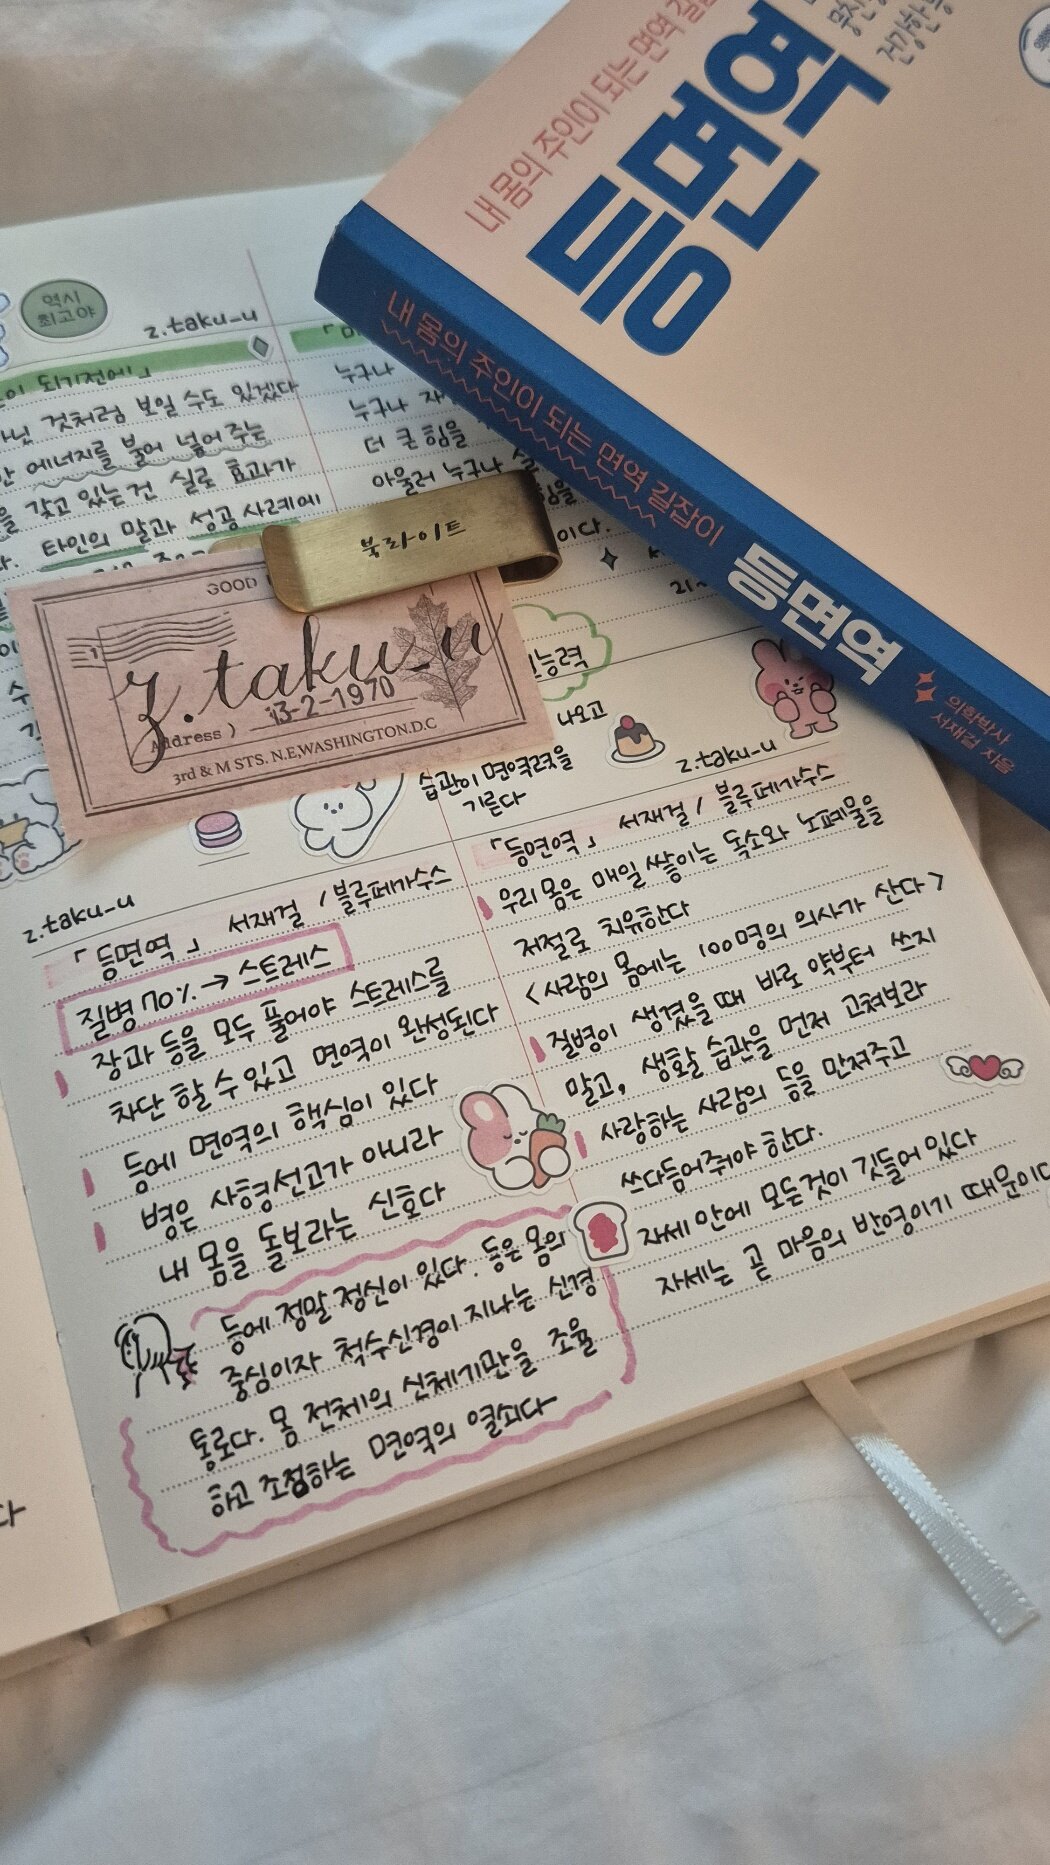 내 몸의 주인이 되는 면역 길잡이
등면역
내 몸의 주인이 되는 면역 길잡이
등면역
의학박사
서재걸 지음
역시
최고야
z.taku_u
되기전에!」
것처럼 보일 수도 있겠다
에너지를 불어 넣어 주는
갖고 있는건 실로 효과가
타인의 말과 성공 사례에
누구나
누구나
더 큰 힘을
아울러 누구나
북라이트
GOOD
z.taku_u
13-2-1970
Address )
3rd & M STS. N.E,WASHINGTON.D.C
나오고
습관이 면역력을
기른다
z.taku_u
「등면역」 서재걸 / 블루페가수스
질병 70% → 스트레스
장과 등을 모두 풀어야 스트레스를
차단 할 수 있고 면역이 완성된다
등에 면역의 핵심이 있다
병은 사형선고가 아니라
내 몸을 돌보라는 신호다
등에 정말 정신이 있다. 등은 몸의
중심이자 척수신경이 지나는 신경
통로다. 몸 전체의 신체기만을 조율
하고 조정하는 면역의 열쇠다
z.taku_u
「등면역」 서재걸 / 블루페가수스
우리 몸은 매일 쌓이는 독소와 노폐물을
저절로 치유한다
<사람의 몸에는 100명의 의사가 산다>
질병이 생겼을때 바로 약부터 쓰지
말고, 생활 습관을 먼저 고쳐보라
사랑하는 사람의 등을 만져주고
쓰다듬어줘야 한다.
자세 안에 모든것이 깃들어 있다
자세는 곧 마음의 반영이기 때문이다